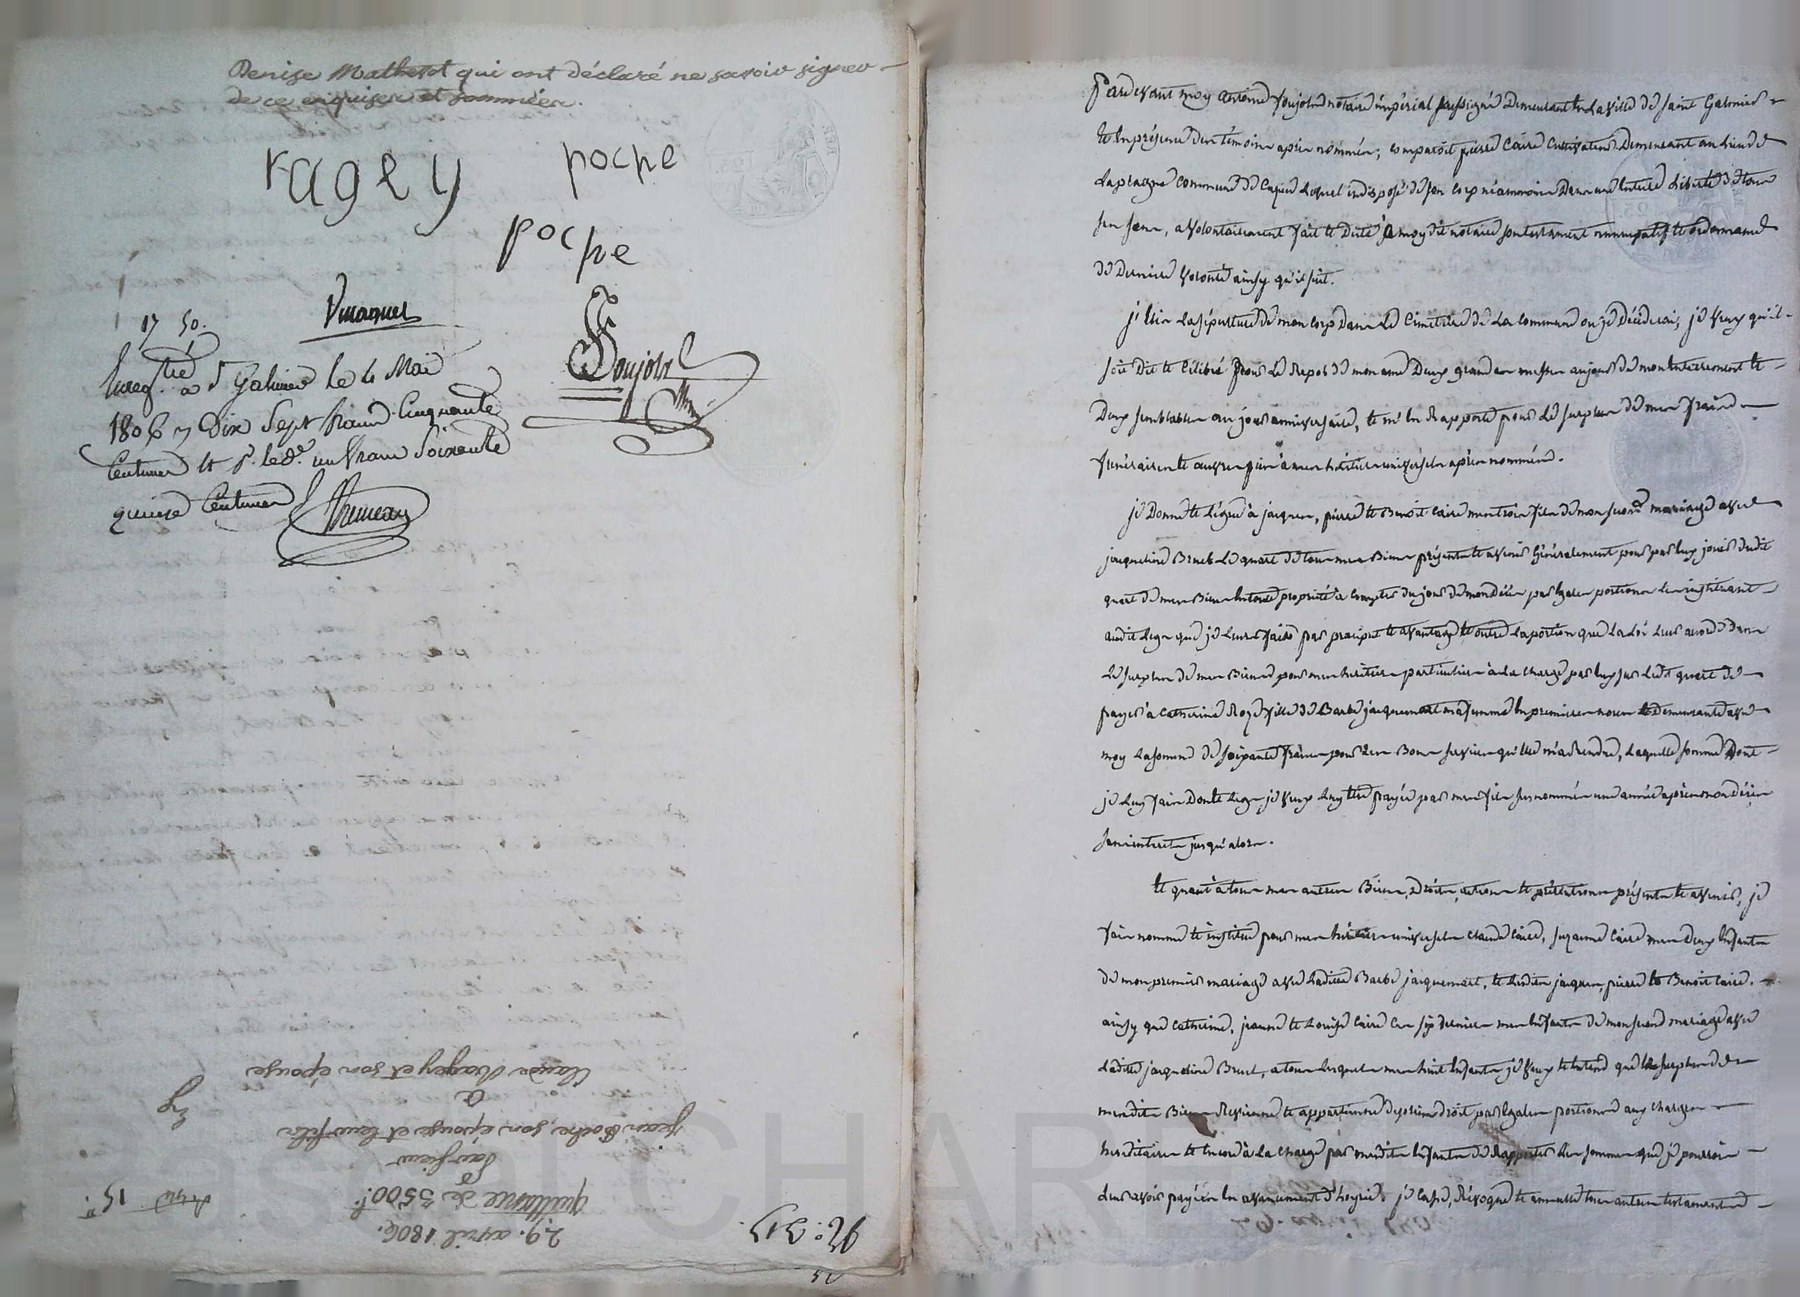 Denise Mathevot qui ont déclaré ne savoir signer
de ce enquises et sommées.
ragey pocpe
pocpe
17 50.
Enreg.tré à St Galmier le 4 Mai
1806 Dix Sept francs Cinquante
Centimes et pr. le de. un franc Soixante
quinze Centimes
Pardevant moy antoine foujols notaire impérial soussigné demeurant en la ville de saint Galmier
et en présence des témoins après nommés; comparoit pierre Caire cultivateur demeurant au lieu de
commune de lequel indisposé de son corps néammoins dans une entière liberté de tous
ses sens, a volontairement fait et dicté à moy dit notaire son testament nuncupatif et ordonnance
de dernière volonté ainsy qu'il suit.
j'élis la sépulture de mon corps dans le cimetière de la commune où je décéderai; je veux qu'il
soit dit et célébré pour le repos de mon ame deux grandes messes au jour de mon enterrement et
deux semblables au jour anniversaire, et m'en rapporte pour le surplus de mes frais
funéraires et œuvres pies à mes héritiers universels après nommés.
je donne et lègue à jacques, pierre et Benoit Caire mes trois fils de mon second mariage avec
jacqueline Bruel le quart de tous mes Biens présents et avenir généralement pour par eux jouir dudit
quart de mes Biens en toute propriété à compter du jour de mon décès par égales portions les instituant
audit legs que je leurs fais par préciput et avantage et outre la portion que la loi leurs accorde dans
le surplus de mes Biens pour mes héritiers particuliers à la charge par eux sur ledit quart de
payer à Catherine fille de Barbe jacquemart ma femme en premières noces demeurante avec
moy la somme de soixante francs pour les Bons services qu'elle m'a rendu, laquelle somme dont
je luy fais don et legs je veux luy être payée par mes fils susnommés une année après mon décès
sans interets jusqu'alors.
et quant à tous mes autres Biens, droits, actions et prétentions présents et avenir, je
fais nomme et institue pour mes héritiers universels Claude Caire, suzanne Caire mes deux Enfants
de mon premier mariage avec ladite Barbe jacquemart, et lesdits jacques, pierre et Benoit Caire.
ainsy que Catherine, jeanne et Louise Caire ces six derniers mes Enfants de mon second mariage avec
ladite jacqueline Bruel, à tous lesquels mes huit Enfants je veux et entend que le surplus de
mesdits Biens revienne et appartienne de plein droit par égales portions aux charges
hereditaires et encore à la charge par mesdits Enfants de rapporter les sommes que je pourrois
leurs avoir payées en avancement d'hoyrie; je casse, révoque et annulle tous autres testaments
No. 313.
29. avril 1806.
quittance de 3500f.
par sieur
jean poche, son épouse et leurs fils
à
Claude Ragey et son épouse